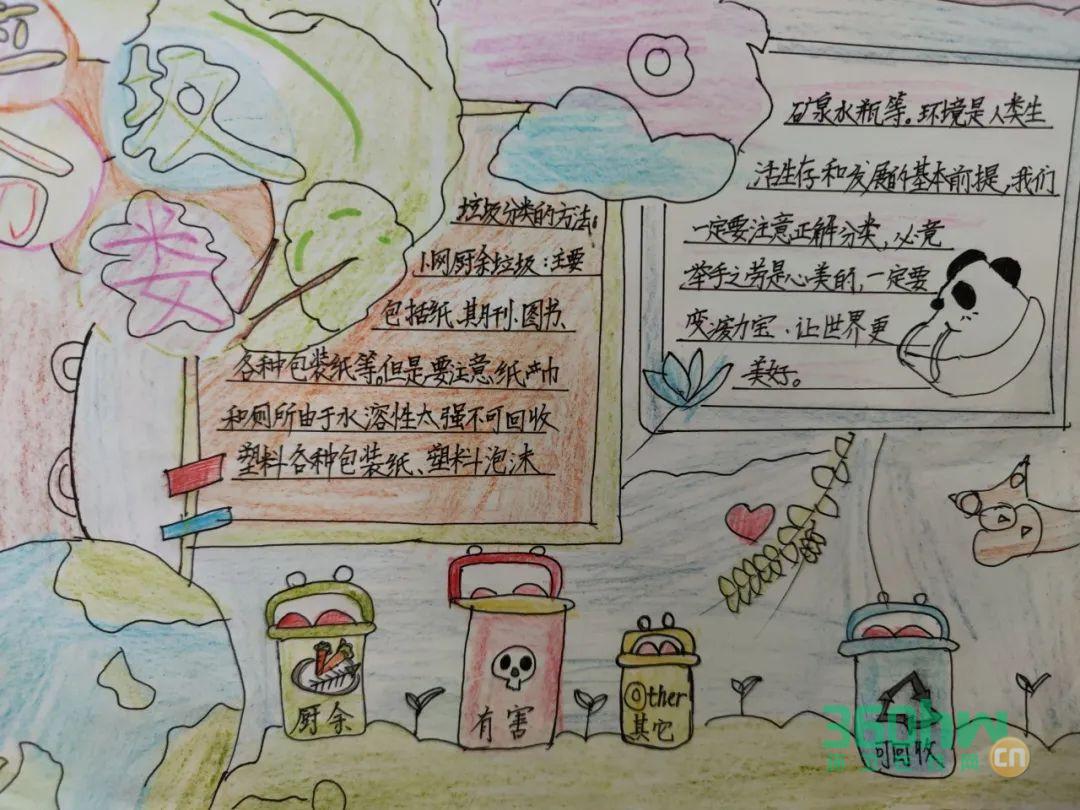 垃
圾
分
类
垃圾分类的方法：
小网厨余垃圾：主要
包括纸、其月刊、图书、
各种包装纸等。但是，要注意，纸巾
和厕所由于水溶性太强不可回收
塑料各种包装纸、塑料泡沫
矿泉水瓶等。环境是人类生
活生存和发展的基本前提，我们
一定要注意正解分类，必竟
举手之劳是心美的，一定要
变渡力宝，让世界更
美好。
厨余
有害
Other
其它
可回收
360hw
CN